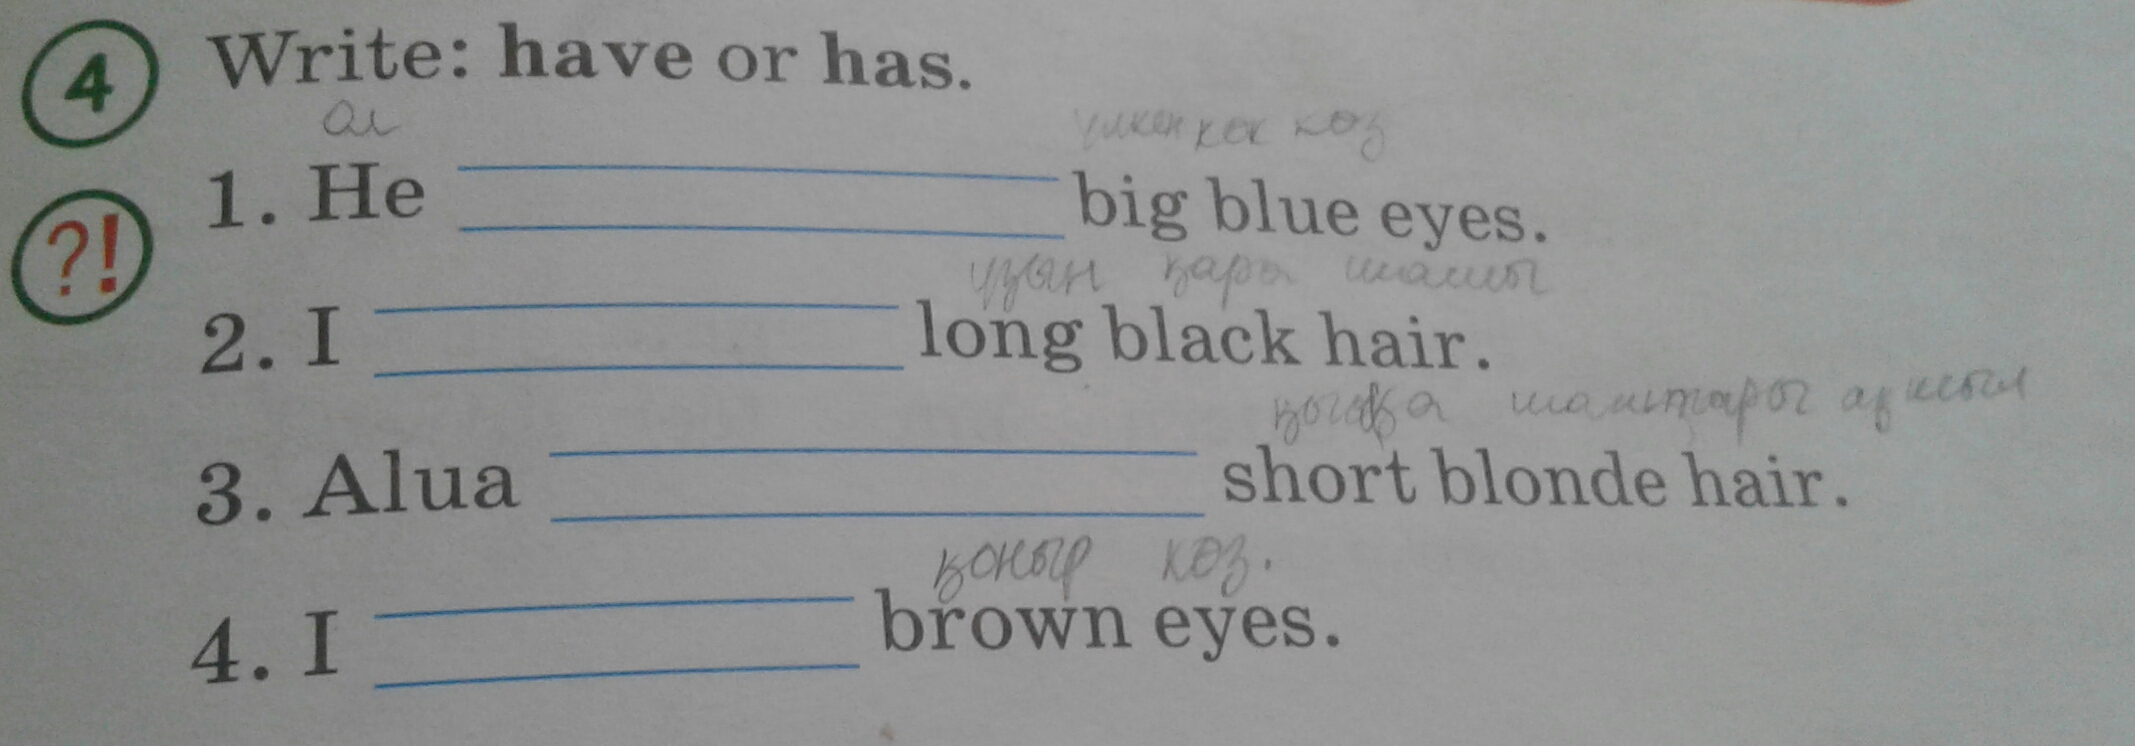 4 Write: have or has.
ол үлкен көк көз
?! 1. He big blue eyes.
ұзын қара шашы
2. I long black hair.
шаштары ақшыл
3. Alua short blonde hair.
қоңыр көз.
4. I brown eyes.